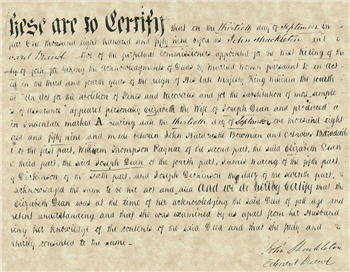 hese are to Certify that on the thirtieth day of September in
one thousand eight hundred and fifty nine before us John Shackleton and
ward Braud two of the perpetual commissioners appointed for the West Riding of the
ty of York for taking the acknowledgments of Deeds by married women pursuant to an act
ed in the third and fourth years of the reign of His late Majesty King William the fourth
"An Act for the abolition of Fines and Recoveries and for the substitution of more simple
of assurance" appeared personally Elizabeth the Wife of Joseph Dean and produced a
in indenture marked A bearing date the thirtieth day of September one thousand eight
red and fifty nine and made between John Bowman and
of the first part, William Thompson of the second part, the said Elizabeth Dean
e third part, the said Joseph Dean of the fourth part, of the fifth part,
Dickenson of the sixth part, and Joseph Dickenson of the seventh part,
acknowledged the same to be her act and deed And we do hereby certify that the
Elizabeth Dean was at the time of her acknowledging the said Deed of full age and
etent understanding and that she was examined by us apart from her Husband
ing her knowledge of the contents of the said Deed and that she freely and
ntarily consented to the same
John Shackleton
Edward Braud